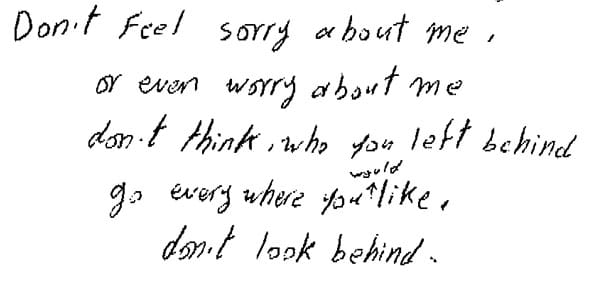 Don't Feel sorry about me,
or even worry about me
don't think, who you left behind
go every where you would like,
don't look behind.